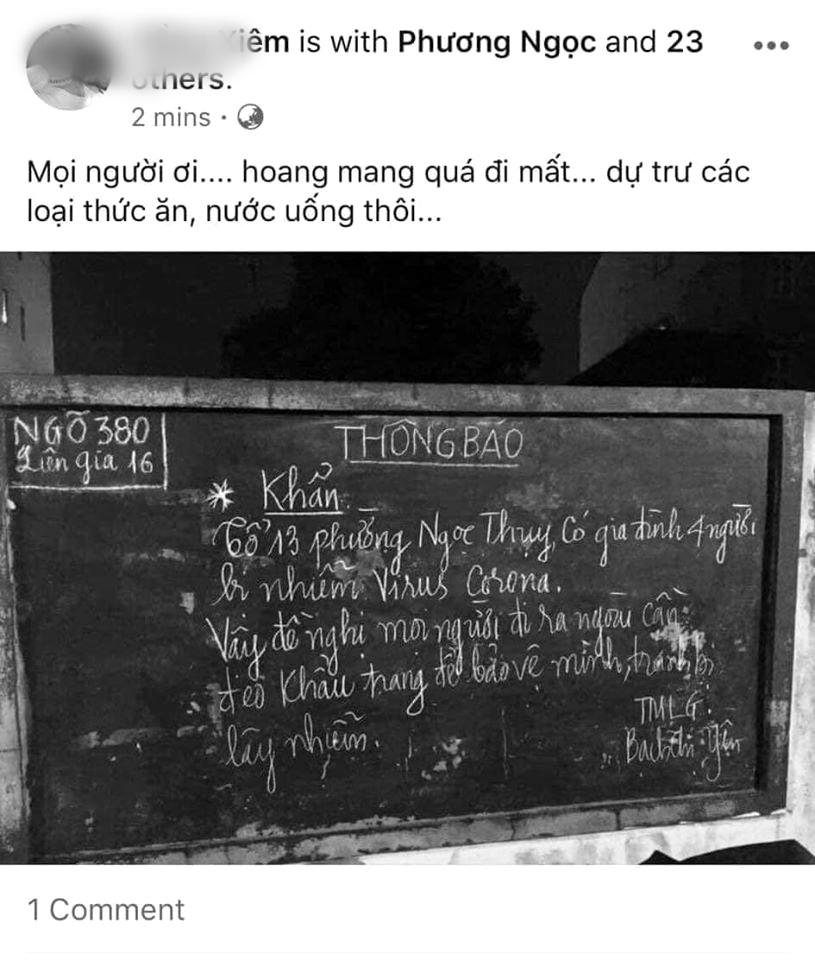 iêm is with Phương Ngọc and 23
others.
2 mins ·
Mọi người ơi.... hoang mang quá đi mất... dự trư các
loại thức ăn, nước uống thôi...
NGÕ 380
Liên gia 16
THÔNG BÁO
* Khẩn:
Tổ 13 phường Ngọc Thụy, Có gia đình 4 người
bị nhiễm Virus Corona.
Vậy đề nghị mọi người đi ra ngoài cần
đeo khẩu trang để bảo vệ mình, tránh bị
lây nhiễm.
TMLG.
Bạch thị Yên
1 Comment